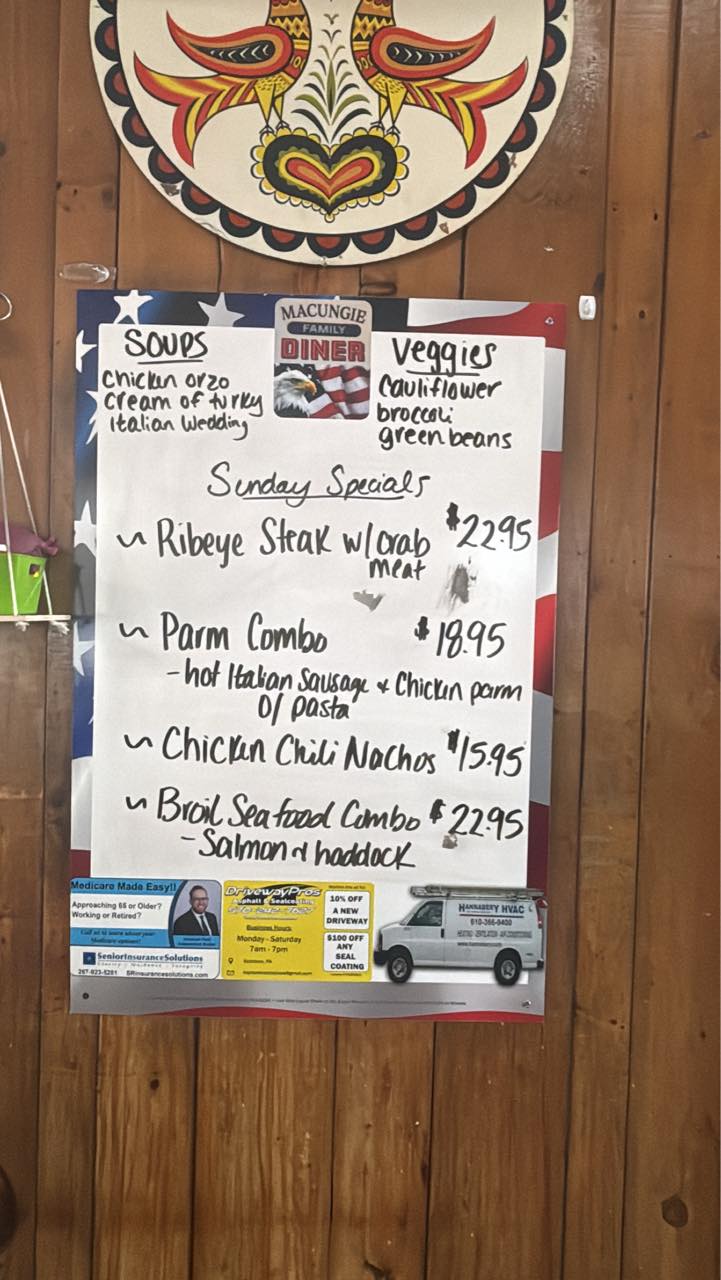 MACUNGIE
FAMILY
DINER
SOUPS
Chicken orzo
Cream of turky
Italian Wedding
Veggies
Cauliflower
broccoli
green beans
Sunday Specials
~ Ribeye Steak w/crab $22.95
meat
~ Parm Combo $18.95
- hot Italian Sausage & Chicken parm
O/ pasta
~ Chicken Chili Nachos $15.95
~ Broil Seafood Combo $22.95
- Salmon & haddock
Medicare Made Easy!!
Approaching 65 or Older?
Working or Retired?
Call us to learn about your
Medicare options!
SeniorInsuranceSolutions
267-923-5281 SRinsurancesolutions.com
DrivewayPros
Asphalt & Sealcoating
Business Hours:
Monday - Saturday
7am - 7pm
10% OFF
A NEW
DRIVEWAY
$100 OFF
ANY
SEAL
COATING
HANNABERY HVAC
610-366-9400